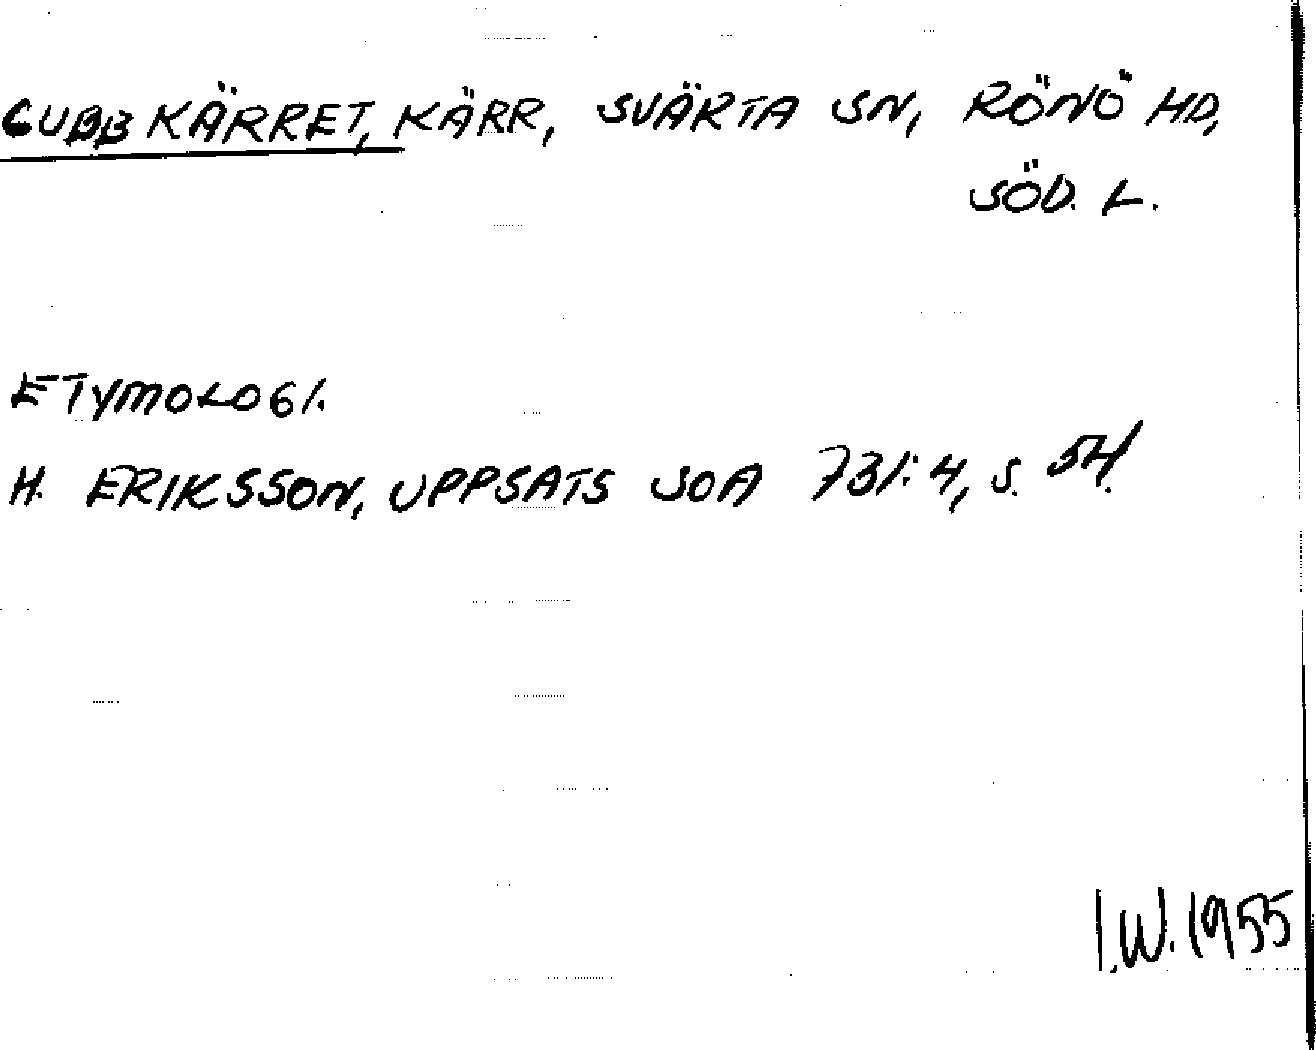 GUBBKÄRRET, KÄRR, SVÄRTA SN, RÖNÖ HD,
SÖD. L.
ETYMOLOGI.
H. ERIKSSON, UPPSATS SOA 731:4, S. 54.
I.W. 1955